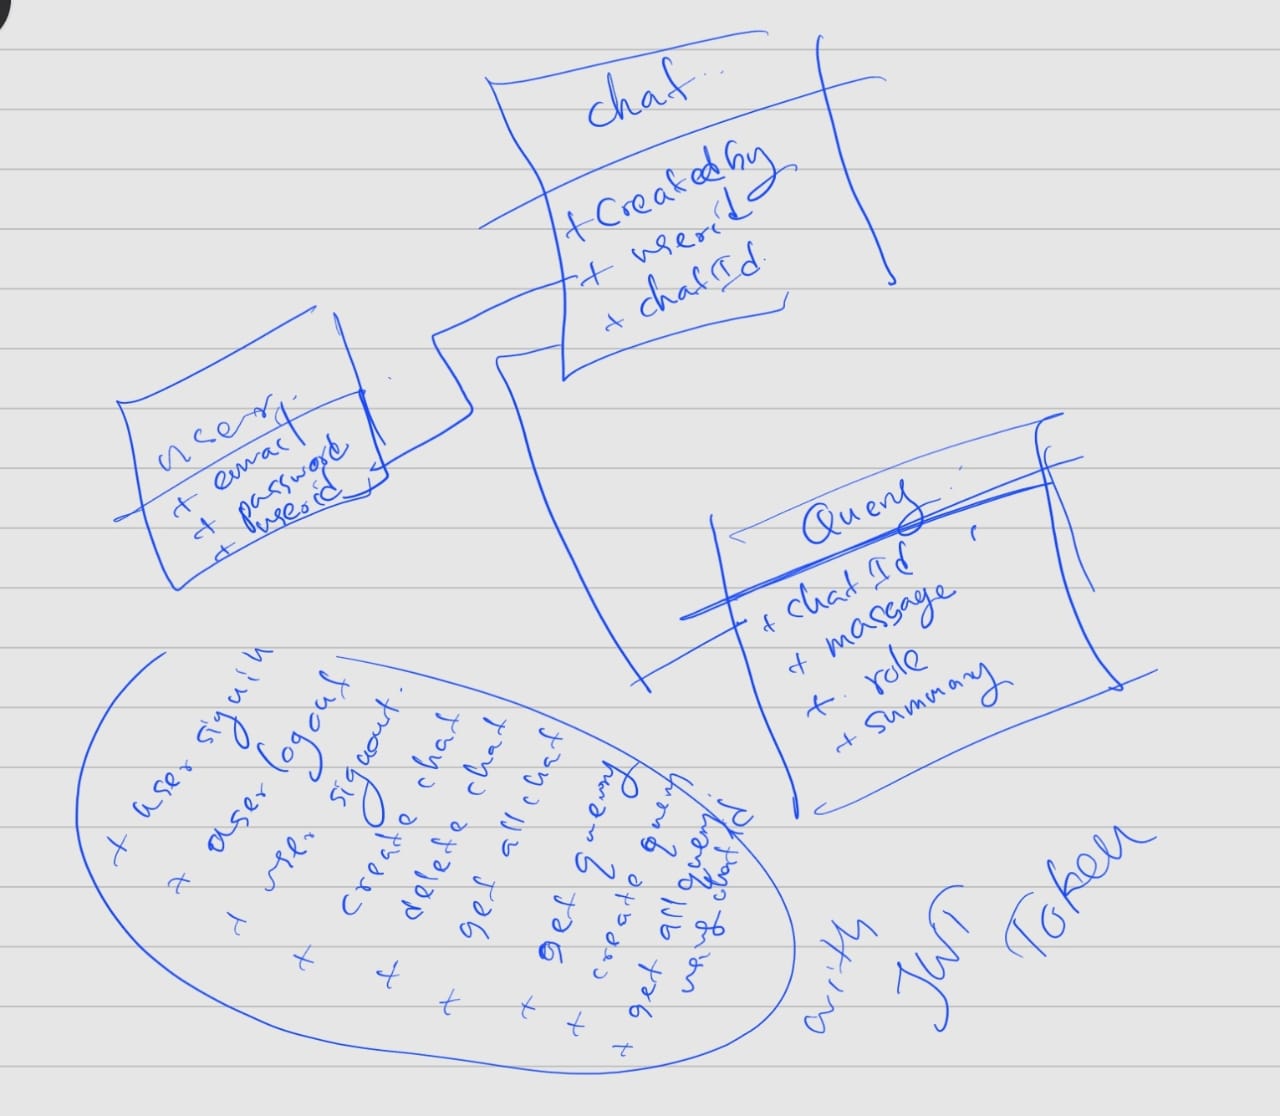 chat
+ Createdby
+ userid
+ chatId
user
+ email
+ password
+ userid
Query
+ chatId
+ massage
+ role
+ summary
+ user signin
+ user logout
+ user signout
+ create chat
+ delete chat
+ get all chat
+ get query
+ create query
+ get all query
using chat id
with
JWT
Token